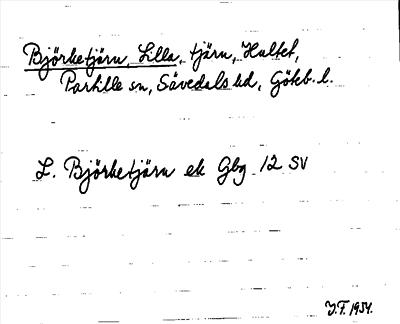 Björketjärn, Lilla, tjärn, Hultet,
Partille sn, Sävedals hd, Göteb. l.
L. Björketjärn ek Gbg 12 SV
J.F. 1954.